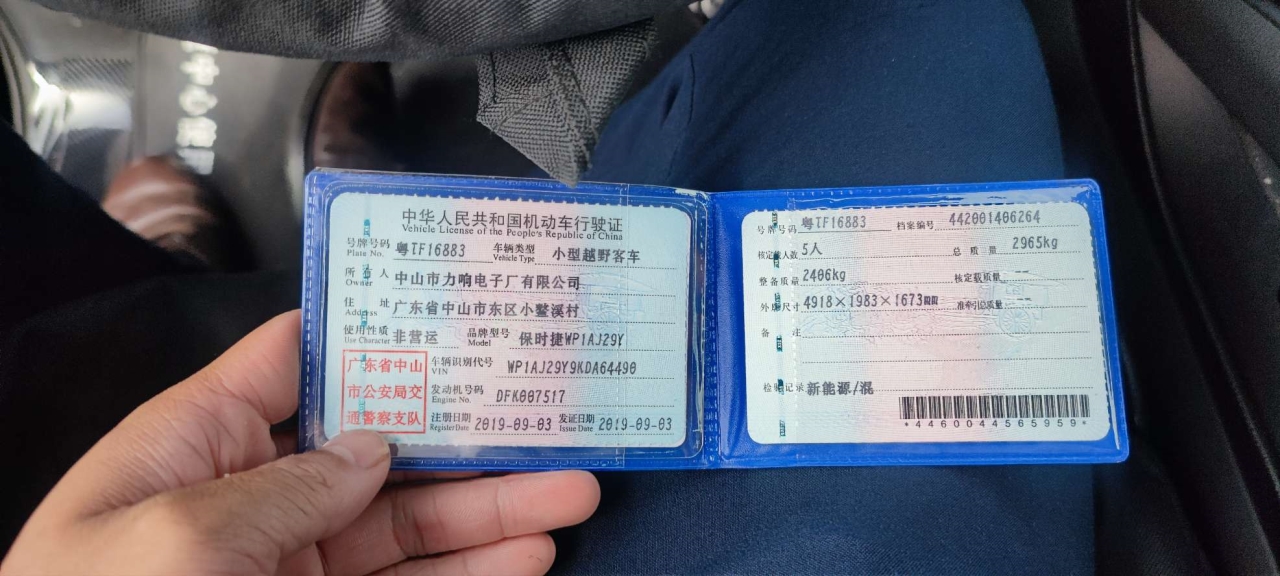 中华人民共和国机动车行驶证
Vehicle License of the People's Republic of China
号牌号码 粤TF16883 车辆类型 小型越野客车
Plate No. Vehicle Type
所有人 中山市力响电子厂有限公司
Owner
住址 广东省中山市东区小鳌溪村
Address
使用性质 非营运 品牌型号 保时捷WP1AJ29Y
Use Character Model
广东省中山
市公安局交
通警察支队
车辆识别代号 WP1AJ29Y9KDA64490
VIN
发动机号码 DFK007517
Engine No.
注册日期 2019-09-03 发证日期 2019-09-03
Register Date Issue Date
号牌号码 粤TF16883 档案编号 442001406264
核定载人数 5人 总质量 2965kg
整备质量 2406kg 核定载质量 --
外廓尺寸 4918×1983×1673mm 准牵引总质量 --
备注
检验记录 新能源/混
*4460044565959*